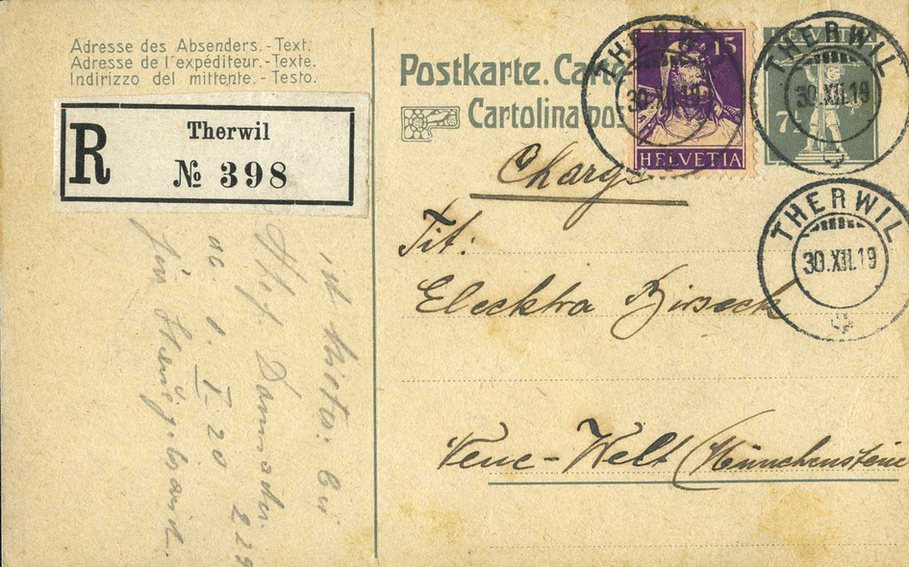 Adresse des Absenders. - Text.
Adresse de l'expéditeur. - Texte.
Indirizzo del mittente. - Testo.
R
Therwil
№ 398
Postkarte. Ca
Cartolina pos
15
HELVETIA
7½
THERWIL
30.XII.19
THERWIL
30.XII.19
THERWIL
30.XII.19
Charg
Tit:
Elecktra Birseck
Neue-Welt (Münchenstein
I 20